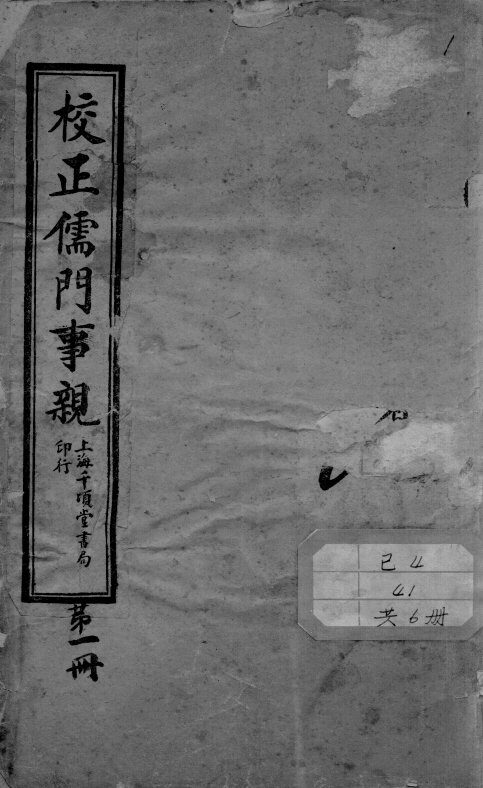 校正儒門事親
上海千頃堂書局
印行
第一冊
1
石
已4
41
共6册